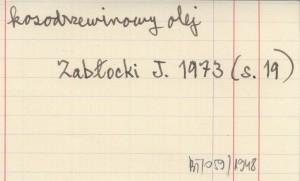 kosodrzewinowy olej
Zabłocki J. 1973 (s. 19)
BJ/059/1948